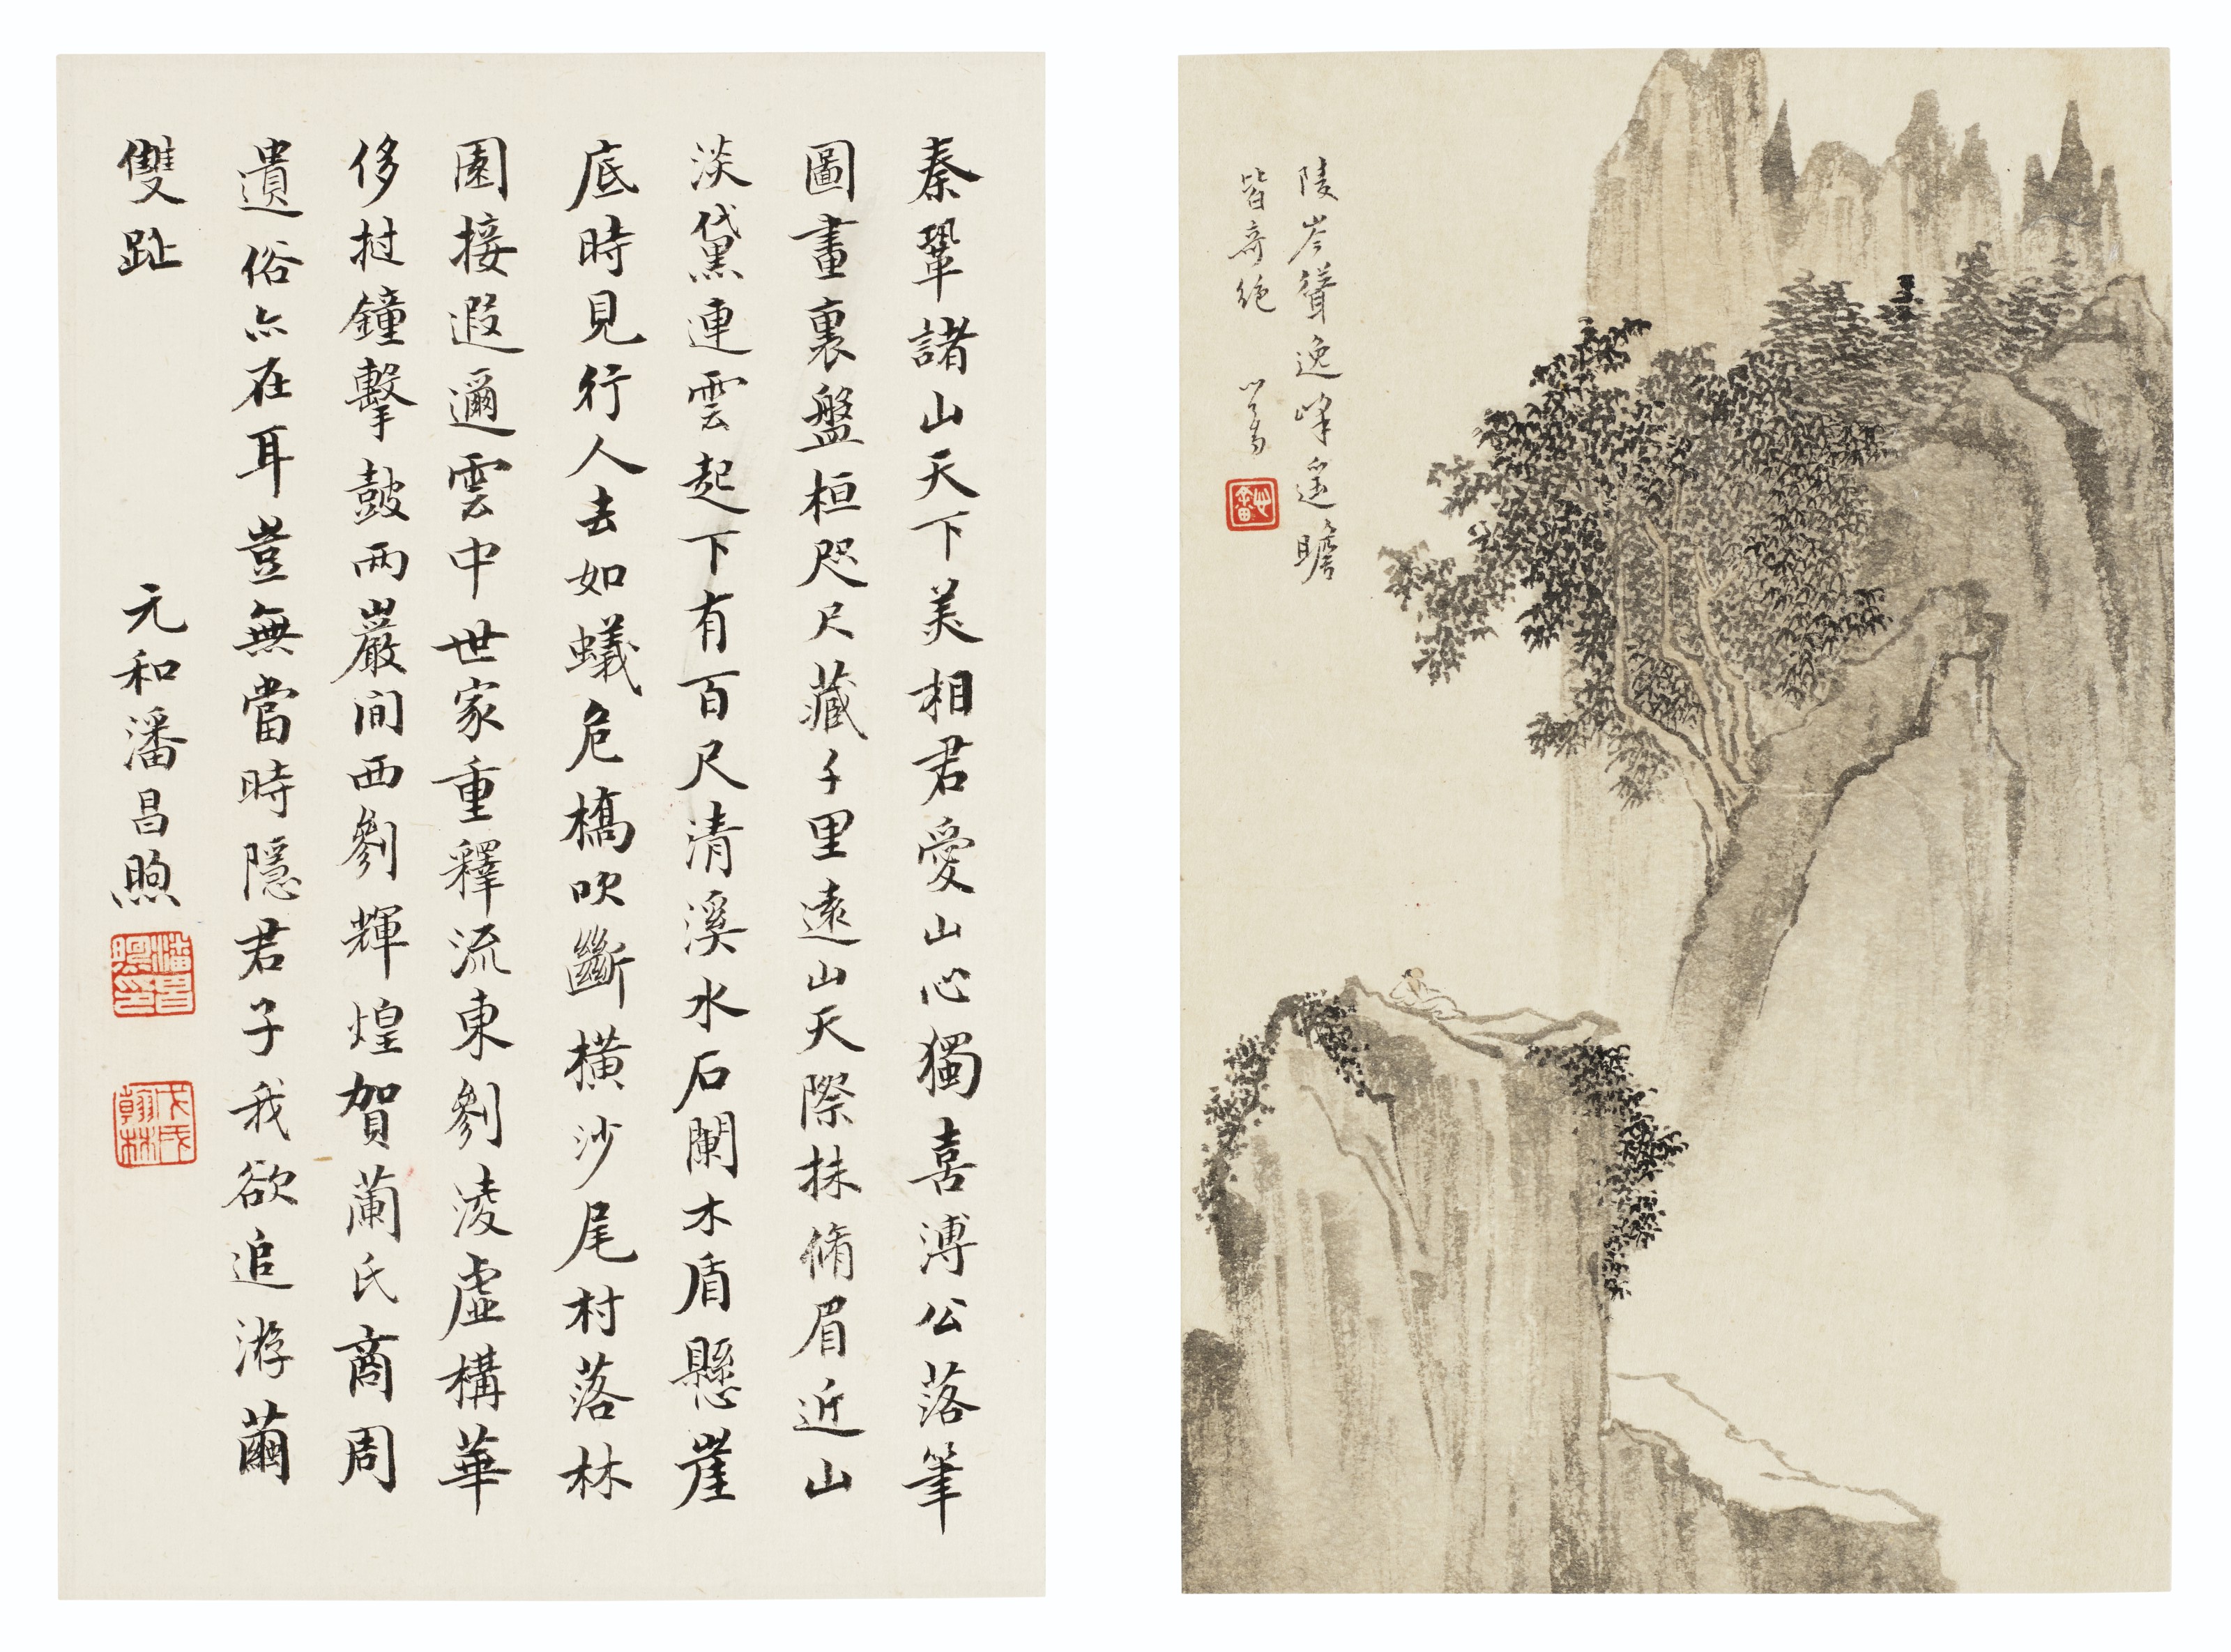 陵岑聳逸峰遥瞻
皆奇絶 心畬
心畬
秦鞏諸山天下美相君愛山心獨喜溥公落筆
圖畫裏盤桓咫尺藏千里遠山天際抹脩眉近山
淡黛連雲起下有百尺清溪水石闌木盾懸崖
底時見行人去如蟻危橋吹斷橫沙尾村落林
園接遐邇雲中世家重釋流東剹淩虛構華
侈挝鐘擊鼓兩巖间西剹輝煌賀蘭氏商周
遺俗亦在耳豈無當時隱君子我欲追游繭
雙趾
元和潘昌煦
潘昌煦印
戊戌翰林